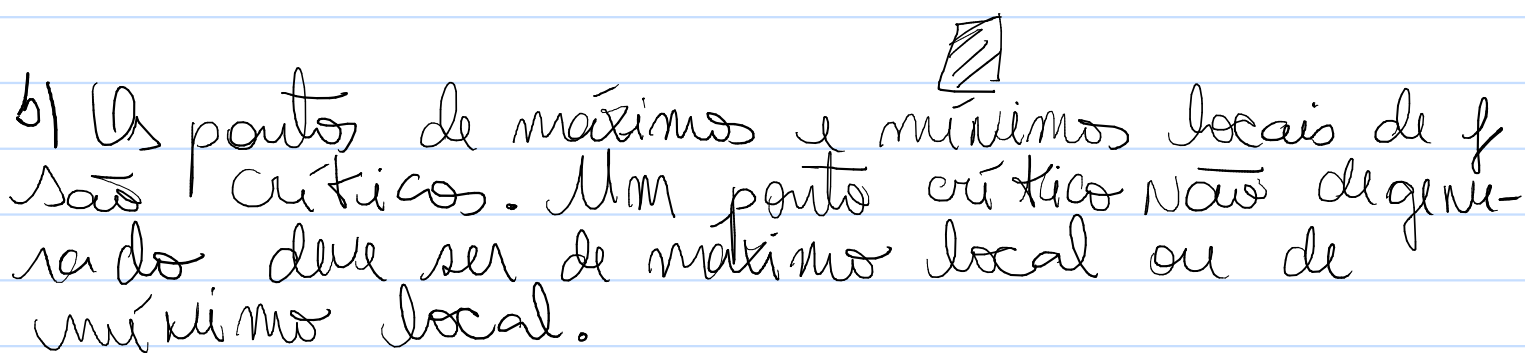 b) Os pontos de máximos e mínimos locais de f
são críticos. Um ponto crítico não degene-
rado deve ser de máximo local ou de
mínimo local.